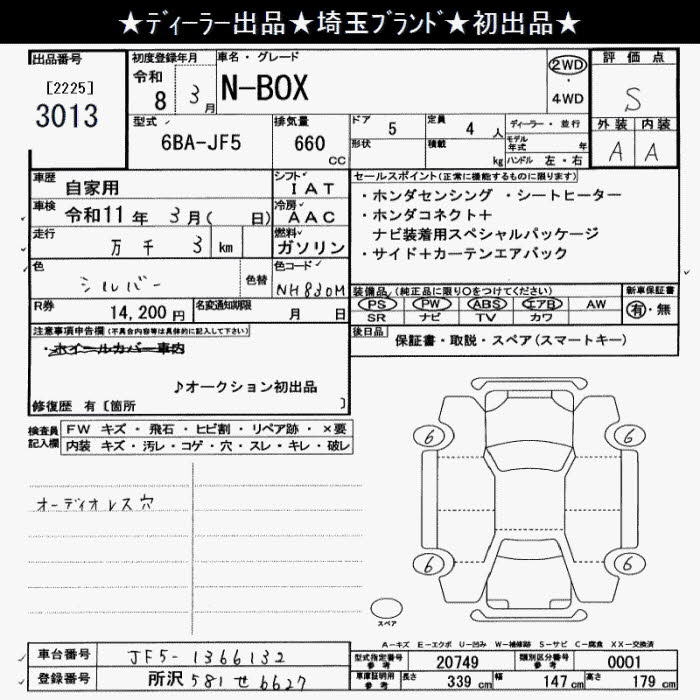 ★ディーラー出品★埼玉ブランド★初出品★
出品番号
[2225]
3013
初度登録年月
令和
8 3月
車名・グレード
N-BOX
2WD
・
4WD
評価点
S
外装 内装
A A
型式
6BA-JF5
排気量
660
CC
ドア 5
形状
定員 4 人
積載 kg
ディーラー・並行
モデル年式 年
ハンドル 左・右
車歴 自家用
シフト
IAT
車検 令和11年 3月( 日)
冷房
AAC
走行 万 千 3 km
燃料
ガソリン
色 シルバー
色替
色コード
NH830M
R券 14,200 円
名変通知期限 月 日
セールスポイント(正常に機能するものに限ります)
・ホンダセンシング ・シートヒーター
・ホンダコネクト+
ナビ装着用スペシャルパッケージ
・サイド+カーテンエアバック
装備品 (純正品に限り○をつけてください)
PS PW ABS エアB AW
SR ナビ TV カワ
新車保証書
有・無
後日品 保証書・取説・スペア(スマートキー)
注意事項申告欄 (不具合内容等は具体的に記入して下さい)
・ホイールカバー車内
♪オークション初出品
修復歴 有〔箇所 〕
検査員記入欄
FW キズ・飛石・ヒビ割・リペア跡・×要
内装 キズ・汚レ・コゲ・穴・スレ・キレ・破レ
オーディオレス穴
6 6
6 6
スペア
A-キズ E-エクボ U-凹み W-補修跡 S-サビ C-腐食 XX-交換済
車台番号 JF5-1366132
登録番号 所沢 581 せ 6627
型式指定番号 参考 20749
類別区分番号 参考 0001
車庫証明用 参考 長さ 339 cm 幅 147 cm 高さ 179 cm